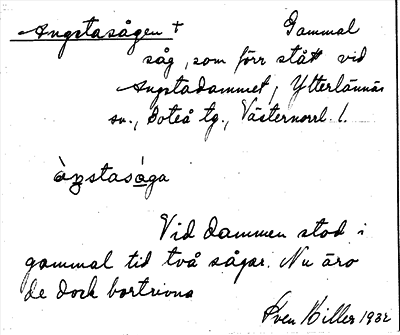 Angstasågen + Gammal
såg, som förr stått vid
Angstadammet, Ytterlännäs
sn., Boteå tg., Västernorrl. l.
àŋstasåga
Vid dammen stod i
gammal tid två sågar. Nu äro
de dock bortrivna
Sven Hillér 1932